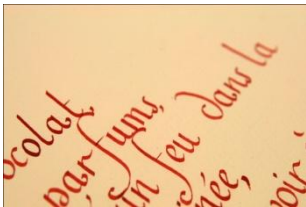 ocolat,
parfums,
un feu dans la
née,
oir